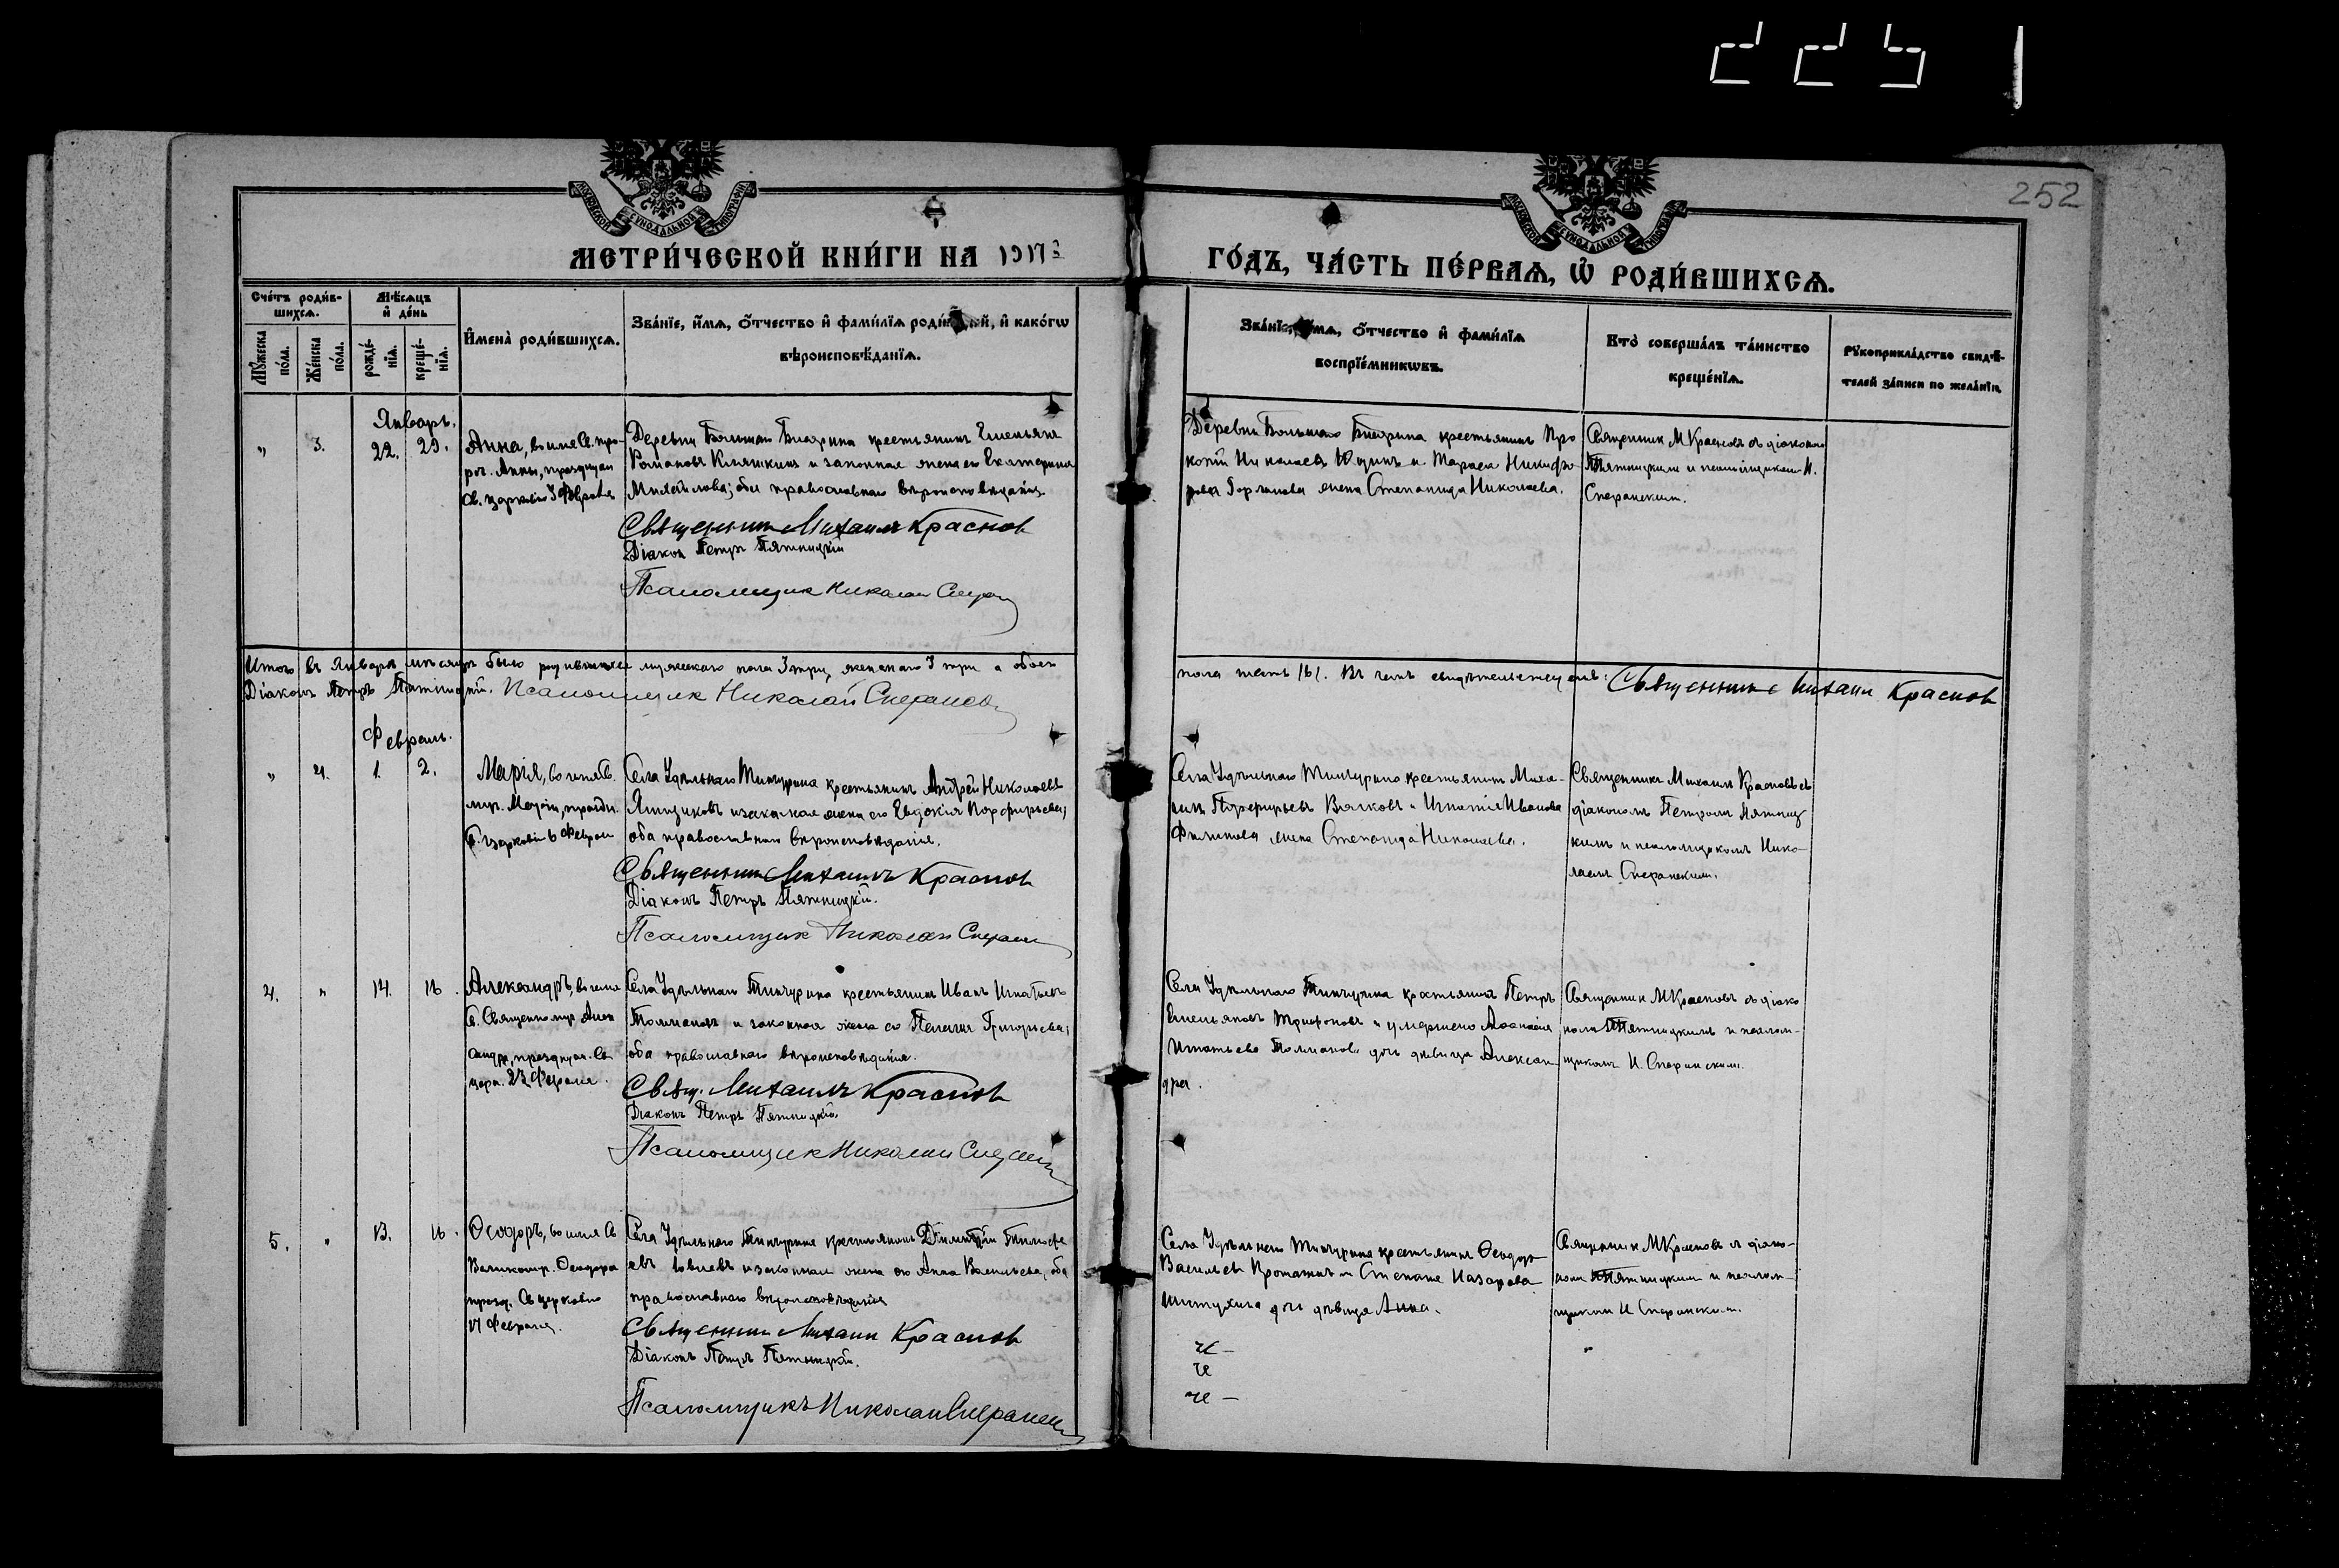 2251
252
МОСКОВСКОЙ СУНОДАЛЬНОЙ ТИПОГРАФІИ
МОСКОВСКОЙ СУНОДАЛЬНОЙ ТИПОГРАФІИ
МЕТРИ́ЧЕСКОЙ КНИ́ГИ НА 1917 г.
ГО́ДЪ, ЧА́СТЬ ПЕ́РВАѦ, Ѽ РОДИ́ВШИХСѦ.
Сче́тъ роди́в-
шихсѧ.
Мꙋ́жеска по́ла.
Же́нска по́ла.
Мѣ́сѧцъ и де́нь
рожде́-
нїѧ.
креще́-
нїѧ.
И҆мена̀ роди́вшихсѧ.
Зва́нїе, и҆́мѧ, ѻ҆́тчество и҆ фами́лїѧ роди́телей, и҆ како́гѡ
вѣроисповѣ́данїѧ.
Зва́нїе, и҆́мѧ, ѻ҆́тчество и҆ фами́лїѧ
воспрїе́мникѡвъ.
Кто̀ соверша́лъ та́инство
креще́нїѧ.
Рꙋкоприкла́дство свидѣ́-
телей за́писи по жела́нїю.
Январь.
" 3. 22. 29.
Анна, во имя Св. про-
роч. Анны, празднуем.
Св. церковію 3 Февраля
Деревни Большаго крестьянинъ Емельянъ
Романовъ Княжкинъ и законная жена его Екатерина
Михайлова; оба православнаго вѣроисповѣданія.
Священникъ Михаилъ Краснов
Діакон Петръ Пятницкій
Псаломщик Николай Сперан
Деревни Большаго крестьянинъ Про
копій Николаевъ и Тараса Никифо
рова жена Степанида Николаева.
Священник М Красновъ съ діакономъ
Пятницкимъ и псаломщикомъ Н.
Сперанским.
Итого въ Январѣ мѣсяцѣ было родившихся мужескаго пола 3 три, женскаго 3 три а обоего
Діаконъ Петръ Пятницкій. Псаломщик Николай Сперанск
пола шесть /6/. Въ чемъ свидѣтельствуемъ: Священникъ Михаил Краснов
Февраль.
" 4. 1. 2.
Марія, во имя Св.
мц. Марѳы, праздн.
Св. церковію 6 Феврал
Села Удѣльнаго Тинчурина крестьянинъ Андрей Николаевъ
Ямщиковъ и законная жена его Евдокія Порфирьева;
оба православнаго вѣроисповѣданія.
Священник Михаилъ Краснов
Діаконъ Петръ Пятницкій.
Псаломщик Николай Сперан
Села Удѣльнаго Тинчурина крестьянинъ Миха-
илъ Порфирьевъ Волковъ и Игнатія Иванова
Филипова жена Степанида Николаева.
Священникъ Михаилъ Красновъ съ
діакономъ Петромъ Пятниц
кимъ и псаломщикомъ Нико-
лаемъ Сперанским.
4. " 14. 16.
Александръ, во имя
Св. Священномуч. Алек
сандра, празднуем. Св.
церк. 23 Февраля.
Села Удѣльнаго Тинчурина крестьянинъ Иванъ Игнатьевъ
Толмановъ и законная жена его Пелагія Григорьева;
оба православнаго вѣроисповѣданія.
Свящ. Михаилъ Краснов
Діаконъ Петръ Пятницкій.
Псаломщик Николай Сперан
Села Удѣльнаго Тинчурина крестьянинъ Петръ
Емельяновъ Трифоновъ и умершаго Аѳанасія
Игнатьева Толманова дочь дѣвица Алексан
дра.
Священник М Красновъ съ діако
номъ Пятницкимъ и псалом-
щикомъ Н. Сперанским.
5. " 13. 16.
Ѳеодоръ, во имя Св
Великомуч. Ѳеодора
празд. Св церковію
17 Февраля.
Села Удѣльнаго Тинчурина крестьянинъ Димитрій Тимоѳе
евъ и законная жена его Анна Васильева, оба
православнаго вѣроисповѣданія
Священник Михаил Краснов
Діаконъ Петръ Пятницкій.
Псаломщикъ Николай Сперанск
Села Удѣльнаго Тинчурина крестьянинъ Ѳеодоръ
Васильевъ и Степана Назарова
дочь дѣвица Анна.
Священник М Красновъ съ діако-
номъ Пятницкимъ и псалом-
щикомъ Н Сперанским.